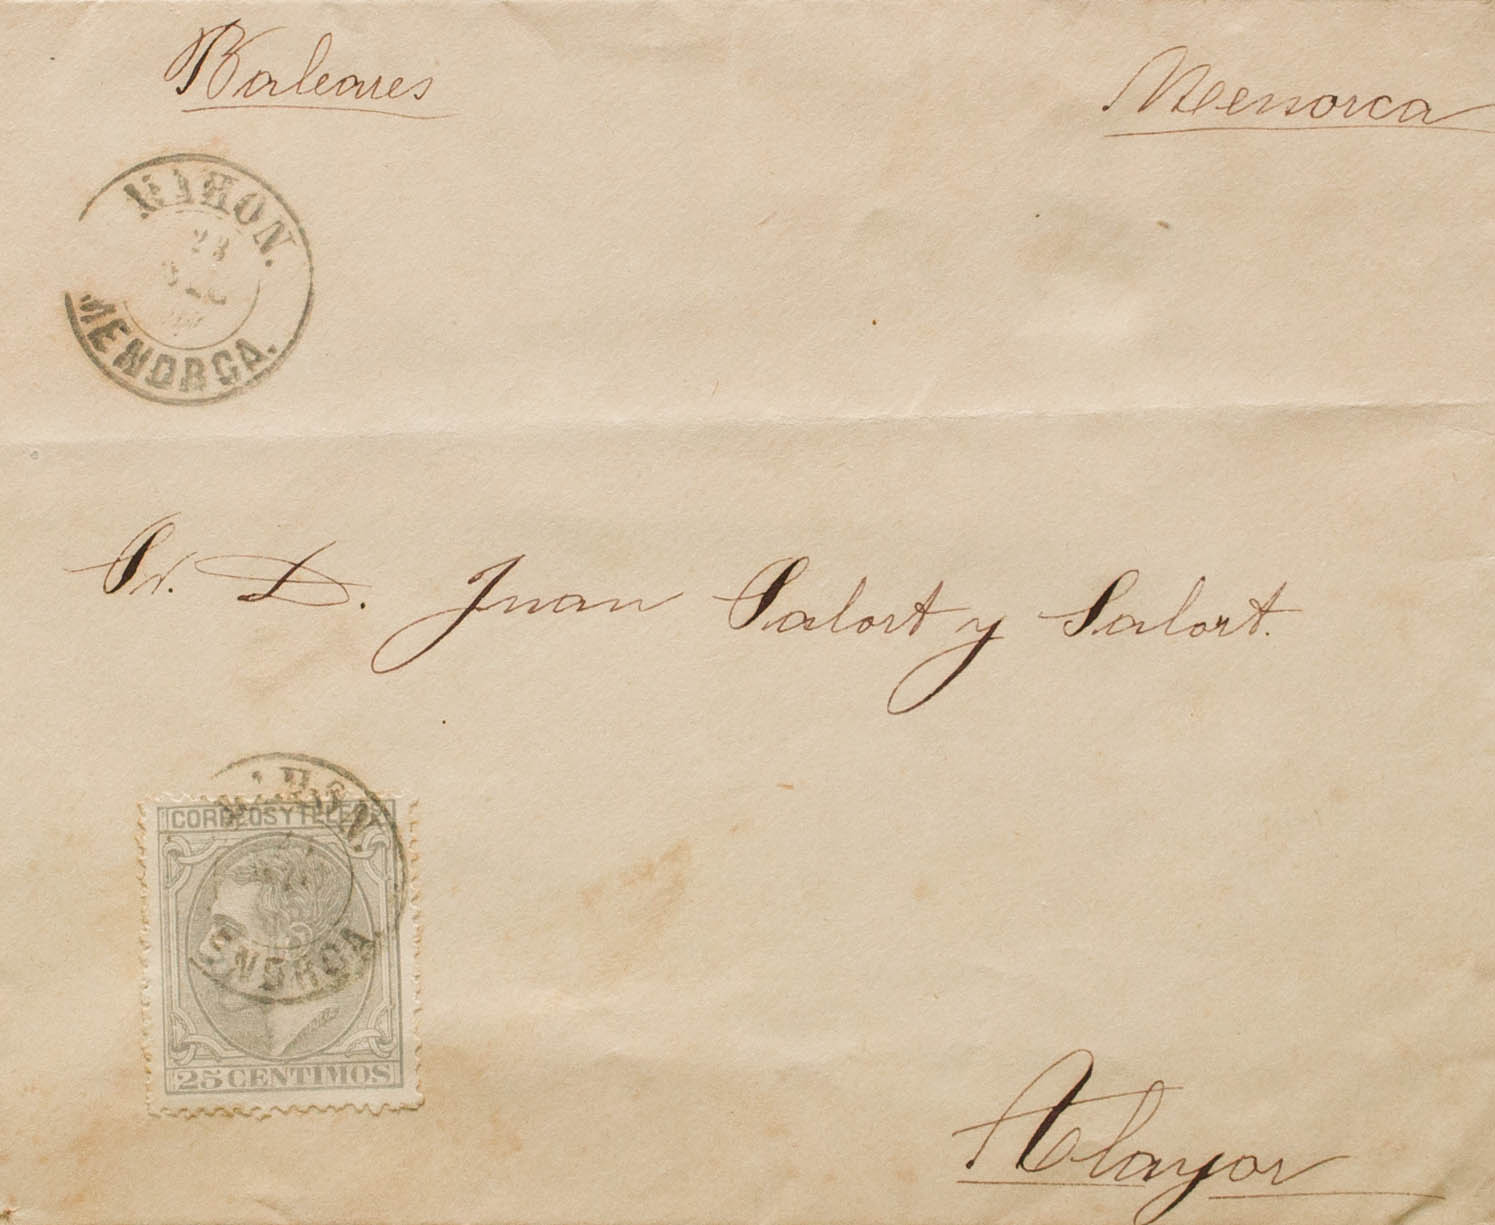 Baleares
Menorca
MAHON.
23
DIC
MENORCA.
Sr. D. Juan Salort y Salort.
MAHON.
CORREOS Y TELEGS
ENORCA.
25 CENTIMOS
Alayor